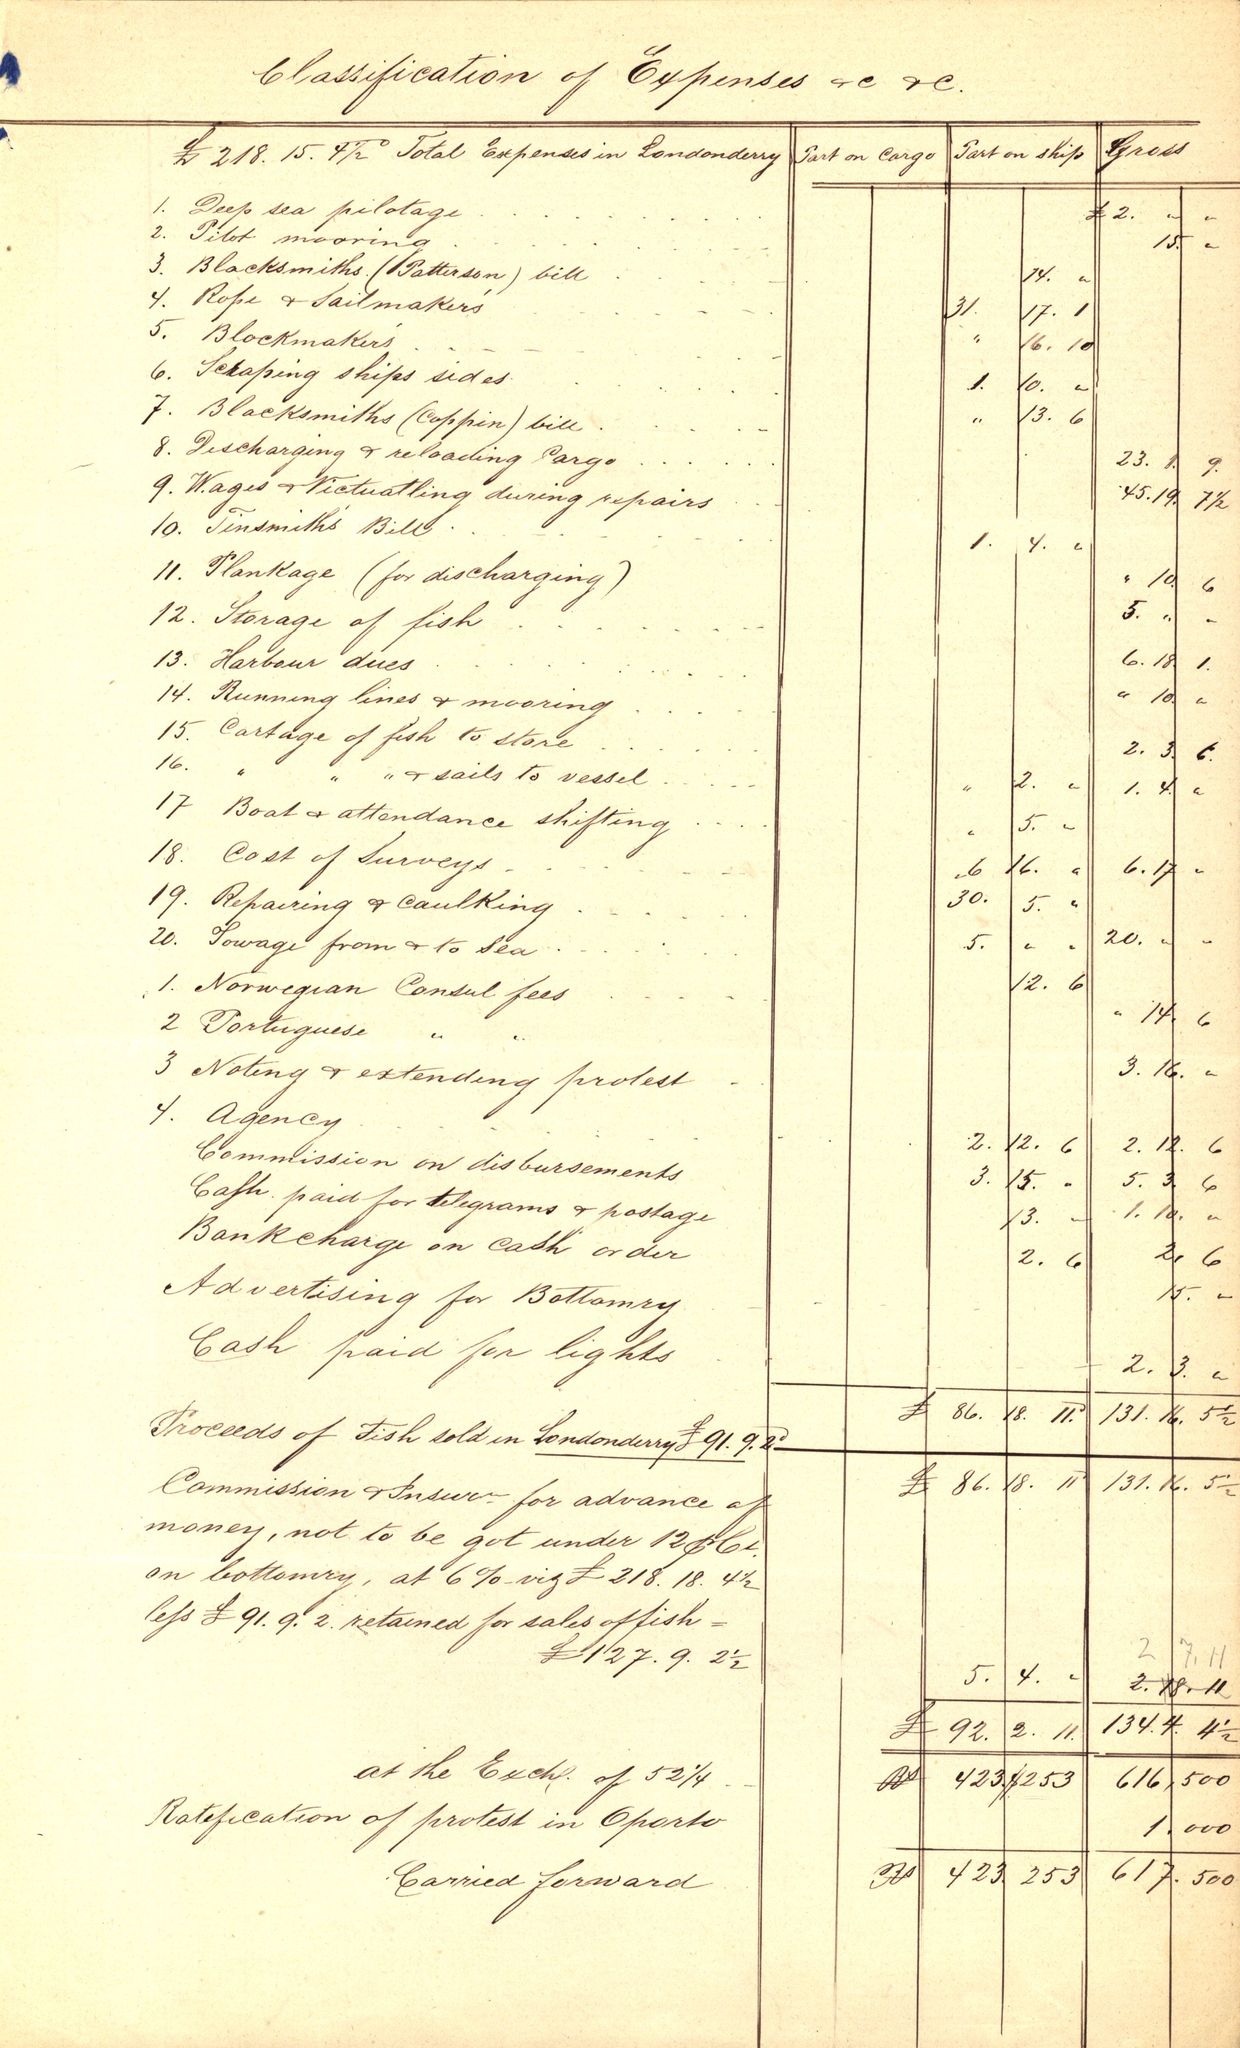 Classification of Expenses &c &c.
£ 218. 15. 4½d Total Expenses in Londonderry Part on Cargo Part on ship Gross
1. Deep sea pilotage £ 2. " "
2. Pilot mooring 15. "
3. Blacksmiths (Patterson) bill 14. "
4. Rope & Sailmaker's 31. 17. 1
5. Blockmaker's " 16. 10
6. Scraping ships sides 1. 10. "
7. Blacksmiths (Coppin) bill " 13. 6
8. Discharging & reloading Cargo 23. 1. 9.
9. Wages & Victualling during repairs 45. 19. 7½
10. Tinsmith's Bill 1. 4. "
11. Plankage (for discharging) " 10. 6
12. Storage of fish 5. " "
13. Harbour dues 6. 18. 1.
14. Running lines & mooring " 10. "
15. Cartage of fish to store 2. 3. 6.
16. " " " & sails to vessel " 2. " 1. 4. "
17 Boat & attendance shifting " 5. "
18. Cost of Surveys 6 16. " 6. 17 "
19. Repairing & Caulking 30. 5. "
20. Towage from & to Sea 5. " " 20. " "
1. Norwegian Consul fees 12. 6
2 Portuguese " " " 14. 6
3 Noting & extending protest 3. 16. "
4. Agency 2. 12. 6 2. 12. 6
Commission on disbursements 3. 15. " 5. 3. 6
Cash paid for telegrams & postage 13. " 1. 10. "
Bankcharge on cash order 2. 6 2. 6
Advertising for Bottomry 15. "
Cash paid for lights 2. 3. "
£ 86. 18. 11. 131. 16. 5½
Proceeds of Fish sold in Londonderry £ 91. 9. 2d
£ 86. 18. 11 131. 16. 5½
Commission & Insur. for advance of
money, not to be got under 12 p Ct.
on bottomry, at 6% viz £ 218. 18. 4½
less £ 91. 9. 2. retained for sales of fish =
£ 127. 9. 2½ 2 7. 11
5. 4. " 2. 18. 11
£ 92. 2. 11. 134. 4. 4½
at the Exch. of 52¼ Rs 423,253 616,500
Ratification of protest in Oporto 1.000
Carried forward Rs 423.253 617.500